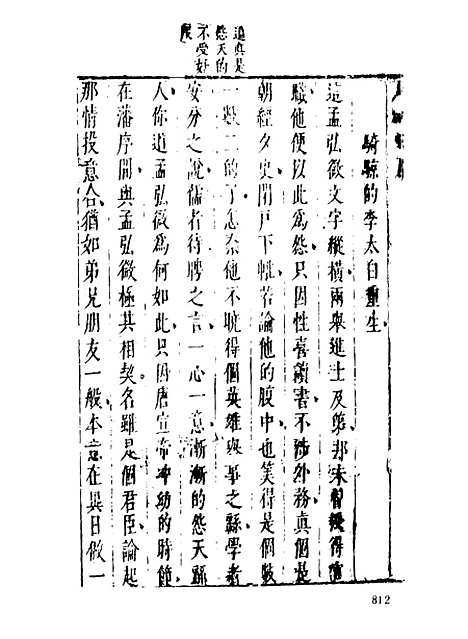 這真是
怨天的
不受好
騎鯨的李太白重生
這孟弘微文字縱橫兩舉進士及第却未曾授得官
職他便以此為怨只因性喜讀書不涉外務真個是
朝經夕史閉戶下帷若論他的腹中也筭得是個數
一數二的了怎奈他不曉得個英雄與
安分之說儒者待聘之言一心一意漸漸的怨天
人你道孟弘微為何如此只因唐宣帝冲幼的時節
在藩序間與孟弘微極其相契名雖是個君臣論起
那情投意合猶如弟兄朋友一般本意在異日做一
812